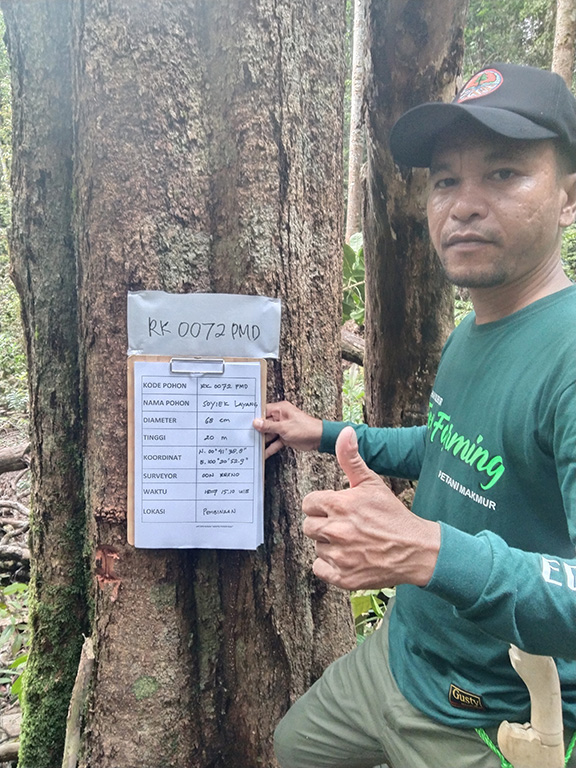 RK 0072 PMD
KODE POHON RK 0072 PMD
NAMA POHON SUYIEK LAYANG
DIAMETER 68 cm
TINGGI 20 m
KOORDINAT N. 00°
E. 100°20'52.9"
SURVEYOR
WAKTU 15.10 WIB
LOKASI PEMBINAAN
Farming
PETANI MAKMUR
Gusty